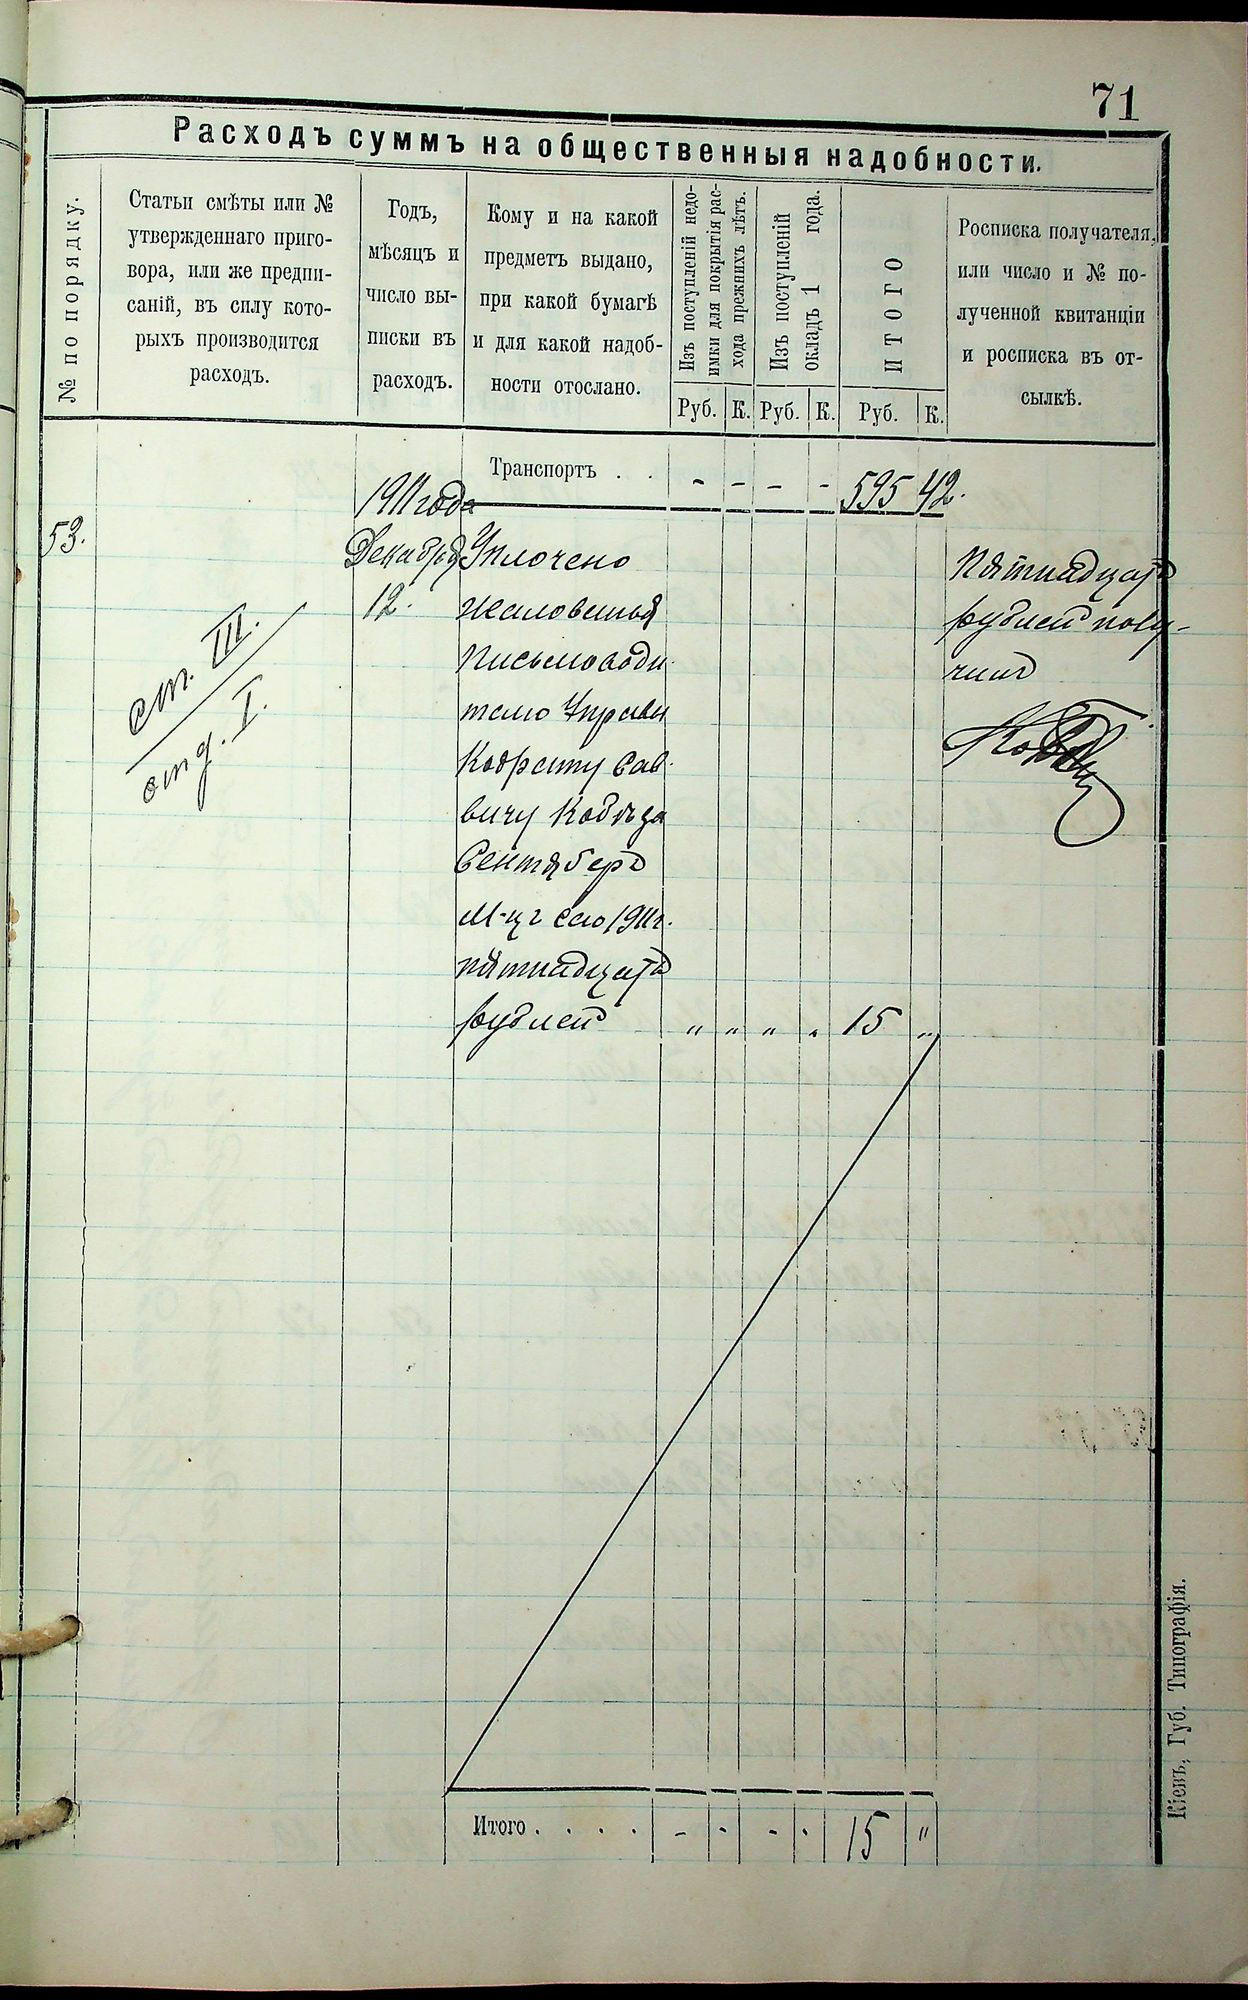 71
Расходъ суммъ на общественныя надобности.
№ по порядку.
Статьи смѣты или №
утвержденнаго приго-
вора, или же предпи-
саній, въ силу кото-
рыхъ производится
расходъ.
Годъ,
мѣсяцъ и
число вы-
писки въ
расходъ.
Кому и на какой
предметъ выдано,
при какой бумагѣ
и для какой надоб-
ности отослано.
Изъ поступленій недо-
имки для покрытія рас-
хода прежнихъ лѣтъ.
Изъ поступленій
окладъ 1 года.
ИТОГО
Росписка получателя,
или число и № по-
лученной квитанціи
и росписка въ от-
сылкѣ.
Руб. К. Руб. К. Руб. К.
Транспортъ . . - - - - 595 42.
1911 года
53.
Декабря
12.
ст. III.
отд. I.
Уплочено
жалованья
Письмоводи-
телю Управы
Кодрату Сав-
вичу
Сентябрь
М-цъ сего 1911 г.
пятнадцать
рублей " " " " 15 "
Пятнадцать
рублей полу-
чилъ
Итого . . . . - - - - 15 "
Кіевъ, Губ. Типографія.